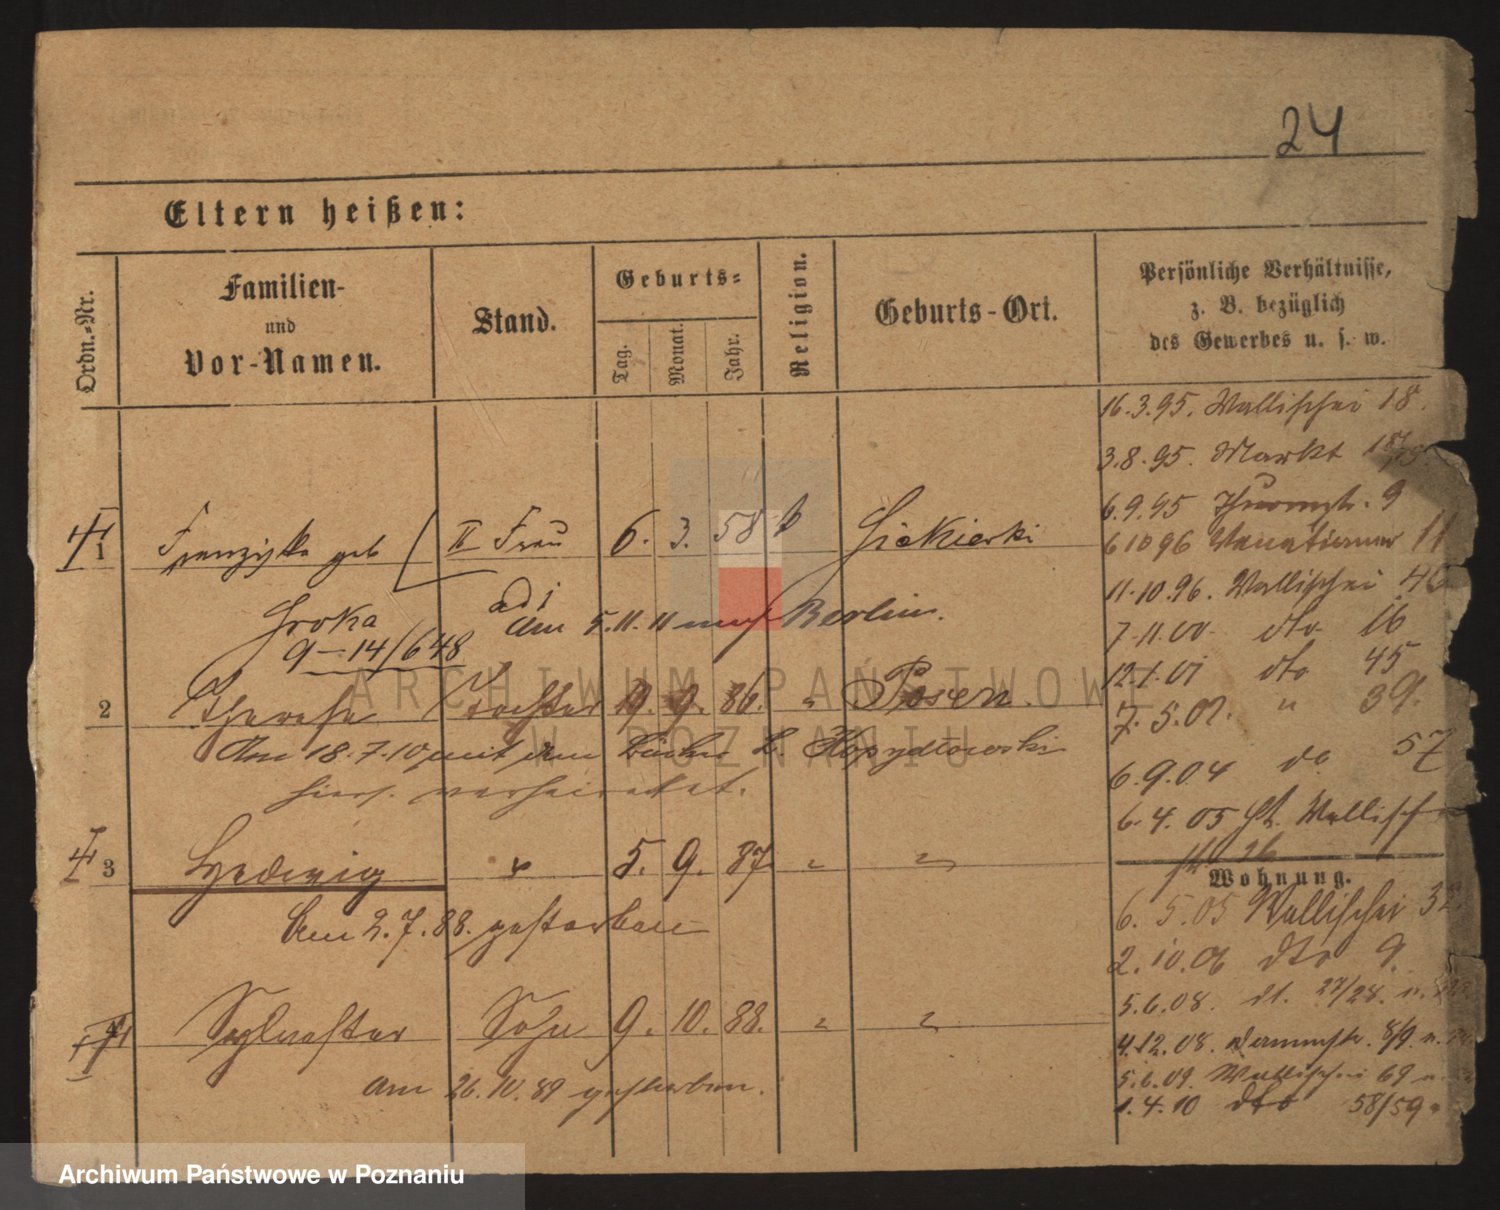 24
Eltern heißen:
Ordn.-Nr.
Familien- und Vor-Namen.
Stand.
Geburts-
Tag.
Monat.
Jahr.
Religion.
Geburts-Ort.
Persönliche Verhältnisse, z. B. bezüglich des Gewerbes u. s. w.
16.3.95. Wallischei 18.
3.8.95. Markt
6.9.95 9
6 10 96 11
11.10.96. Wallischei 46
7.11.00. dto 16
12.1.01 dto 45
7.5.02. " 39.
6.9.04 do 57
6.4.05 Wallisch
1 Franziska geb II Frau 6. 3. 58 k
Groka
9-14/648
am 5.11.11 nach Berlin.
2 Therese Tochter 19. 9. 86. " Posen.
Am 18.7.10 mit dem
hier. verheiratet.
3 Hedwig " 5. 9. 87 " "
Am 2.7.88. gestorben
4 Sylvester Sohn 9. 10. 88. " "
Am 26.10.89 gestorben.
Wohnung.
6.5.05 Wallischei 32
2.10.06 dto 9.
5.6.08. dt. 27/28.
4.12.08. 8/9
5.6.09. Wallischei 69
1.4.10 dto 58/59.
ARCHIWUM PAŃSTWOWE
W POZNANIU
Archiwum Państwowe w Poznaniu